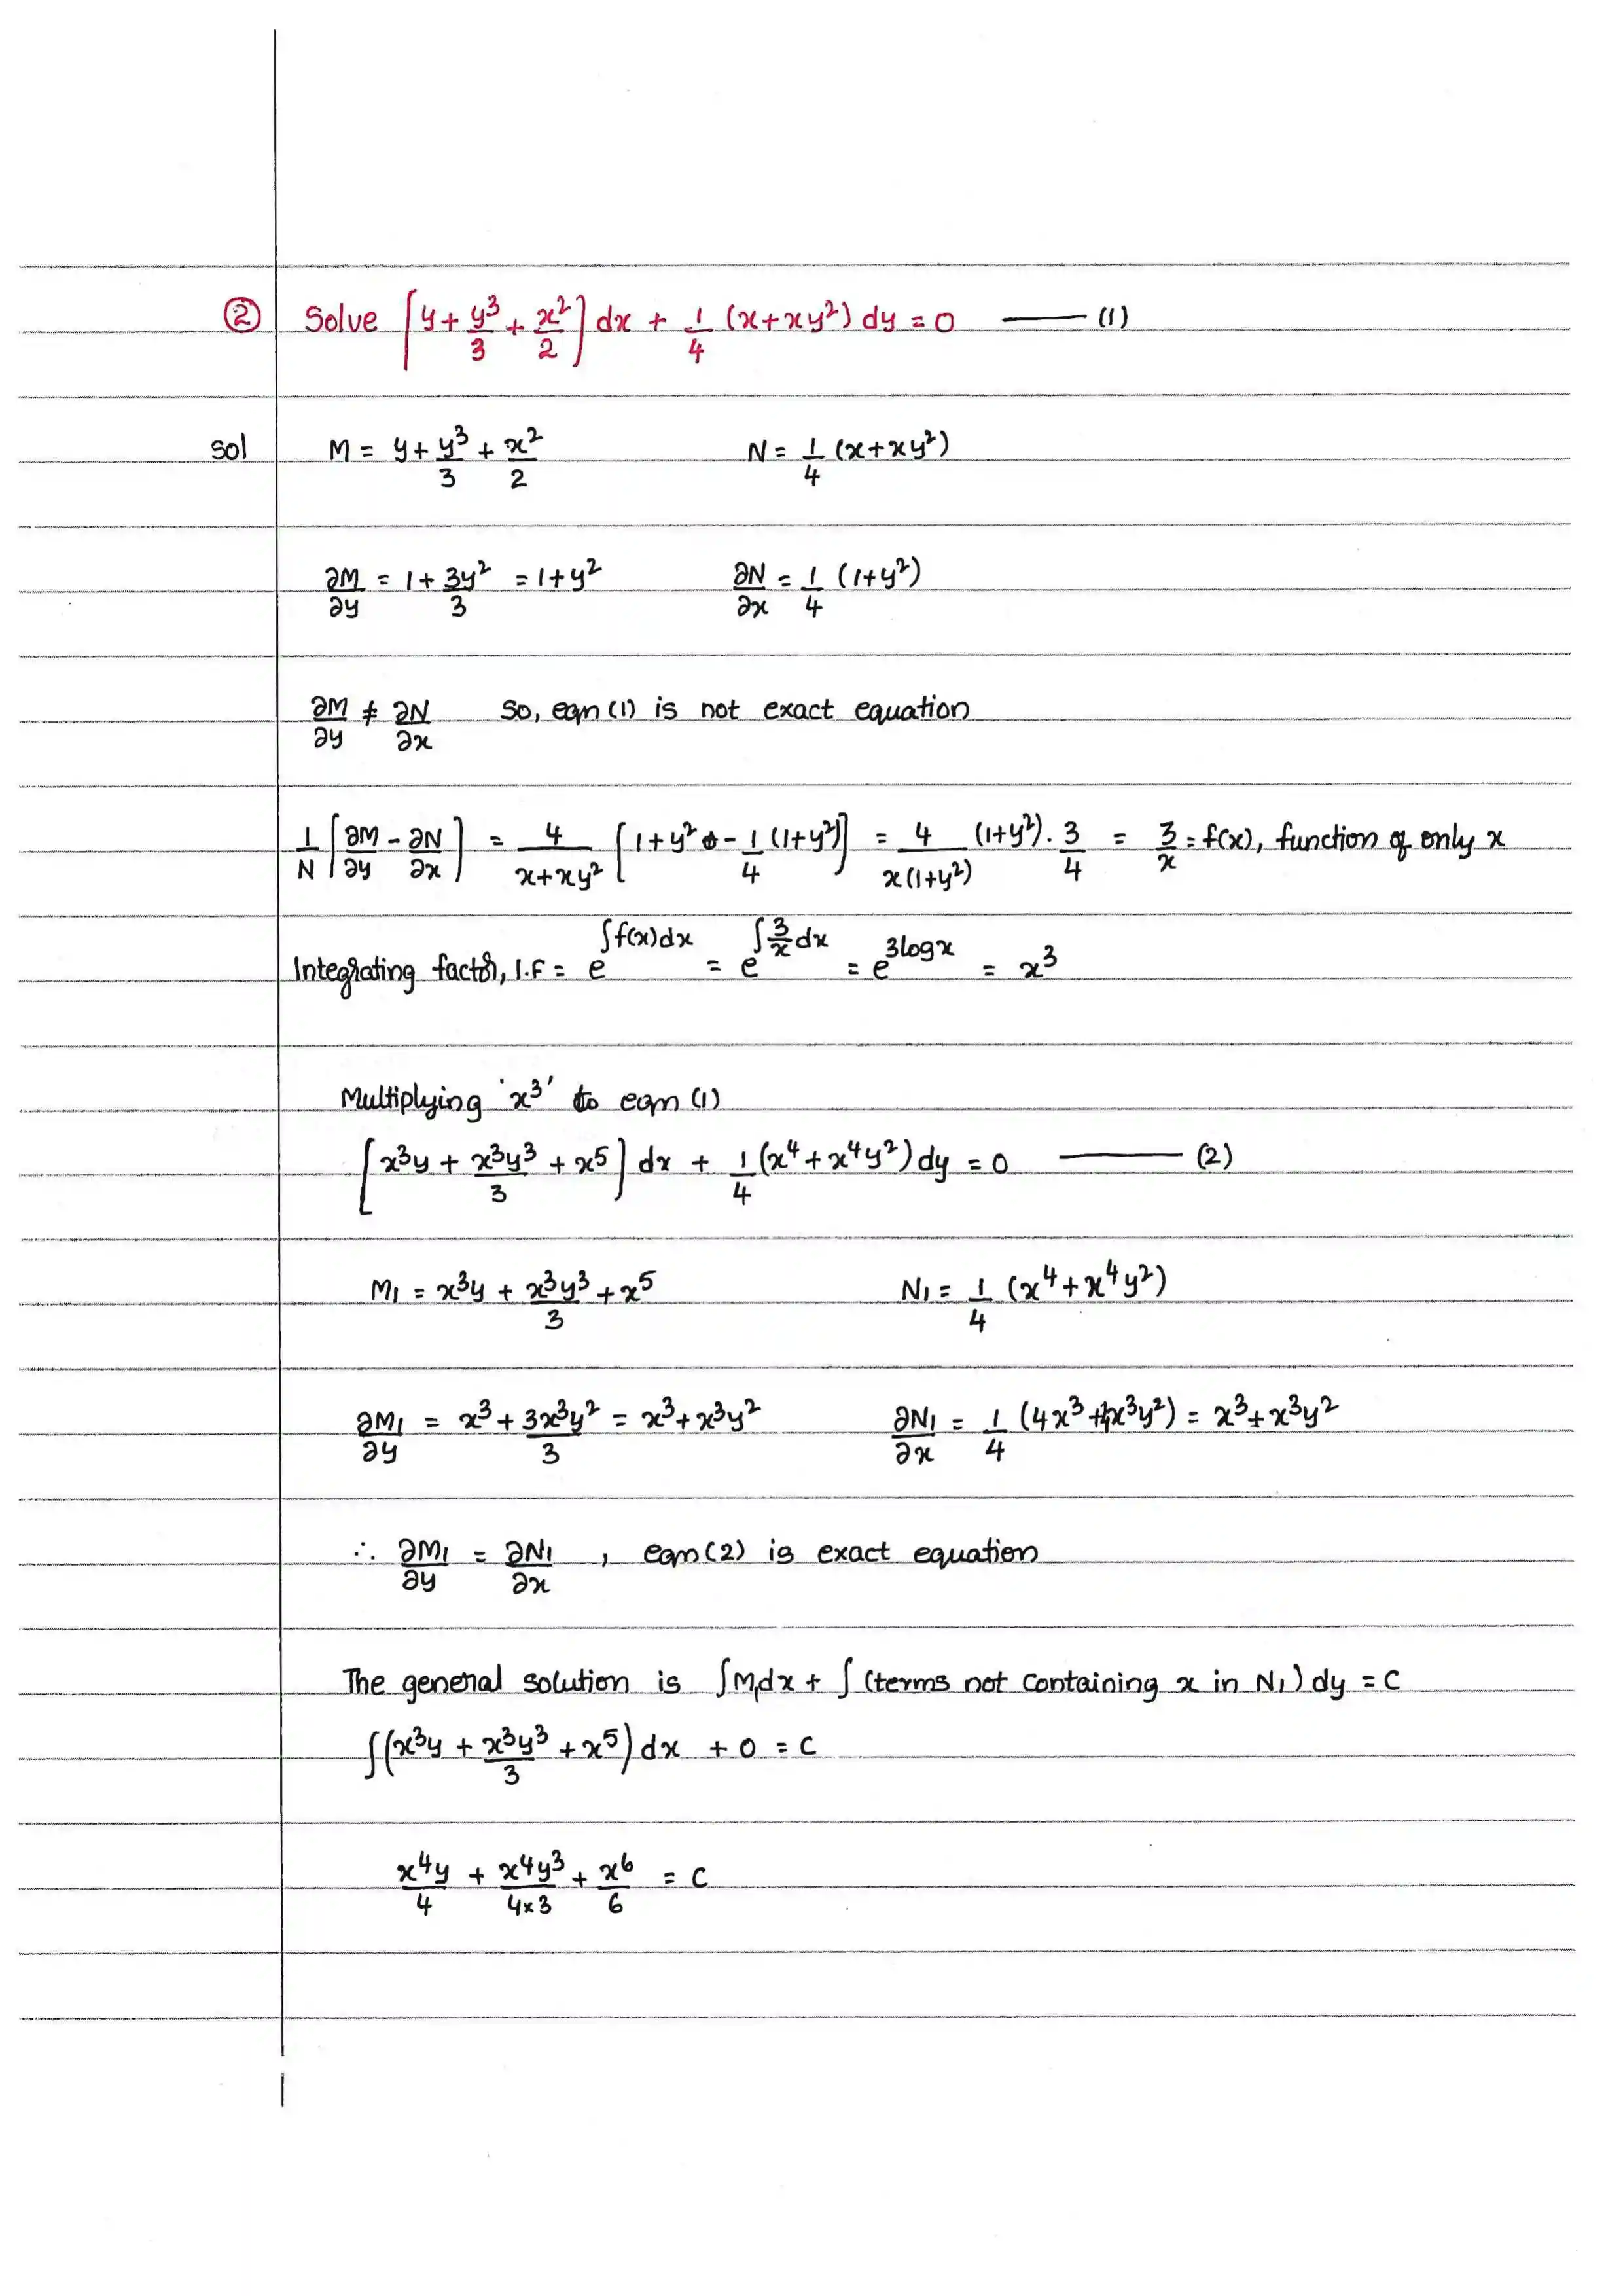 ② Solve [y + y³/3 + x²/2] dx + 1/4 (x + xy²) dy = 0 —— (1)
Sol M = y + y³/3 + x²/2 N = 1/4 (x + xy²)
∂M/∂y = 1 + 3y²/3 = 1 + y² ∂N/∂x = 1/4 (1 + y²)
∂M/∂y ≠ ∂N/∂x So, eqn (1) is not exact equation
1/N [∂M/∂y - ∂N/∂x] = 4/(x + xy²) [1 + y² - 1/4 (1 + y²)] = 4/(x(1 + y²)) (1 + y²) · 3/4 = 3/x = f(x), function of only x
Integrating factor, I.F = e^(∫f(x)dx) = e^(∫3/x dx) = e^(3logx) = x³
Multiplying 'x³' to eqn (1)
[x³y + x³y³/3 + x⁵] dx + 1/4 (x⁴ + x⁴y²) dy = 0 —— (2)
M₁ = x³y + x³y³/3 + x⁵ N₁ = 1/4 (x⁴ + x⁴y²)
∂M₁/∂y = x³ + 3x³y²/3 = x³ + x³y² ∂N₁/∂x = 1/4 (4x³ + 4x³y²) = x³ + x³y²
∴ ∂M₁/∂y = ∂N₁/∂x , eqn (2) is exact equation
The general solution is ∫M₁dx + ∫(terms not containing x in N₁) dy = C
∫(x³y + x³y³/3 + x⁵) dx + 0 = C
x⁴y/4 + x⁴y³/(4×3) + x⁶/6 = C